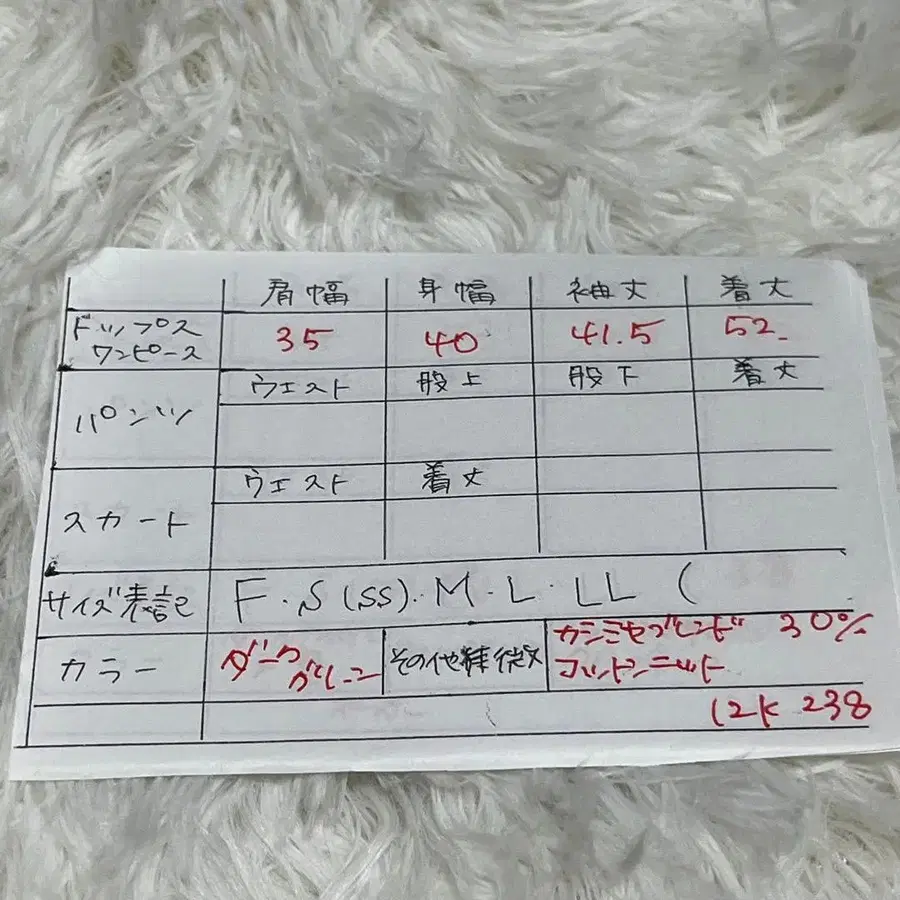 肩幅 身幅 袖丈 着丈
トップス ワンピース 35 40 41.5 52
ウエスト 股上 股下 着丈
パンツ
ウエスト 着丈
スカート
サイズ表記 F・S(SS)・M・L・LL (
カラー ダークグレーン その他特徴 カシミヤブレンド 30%
コットンニット
12K 238